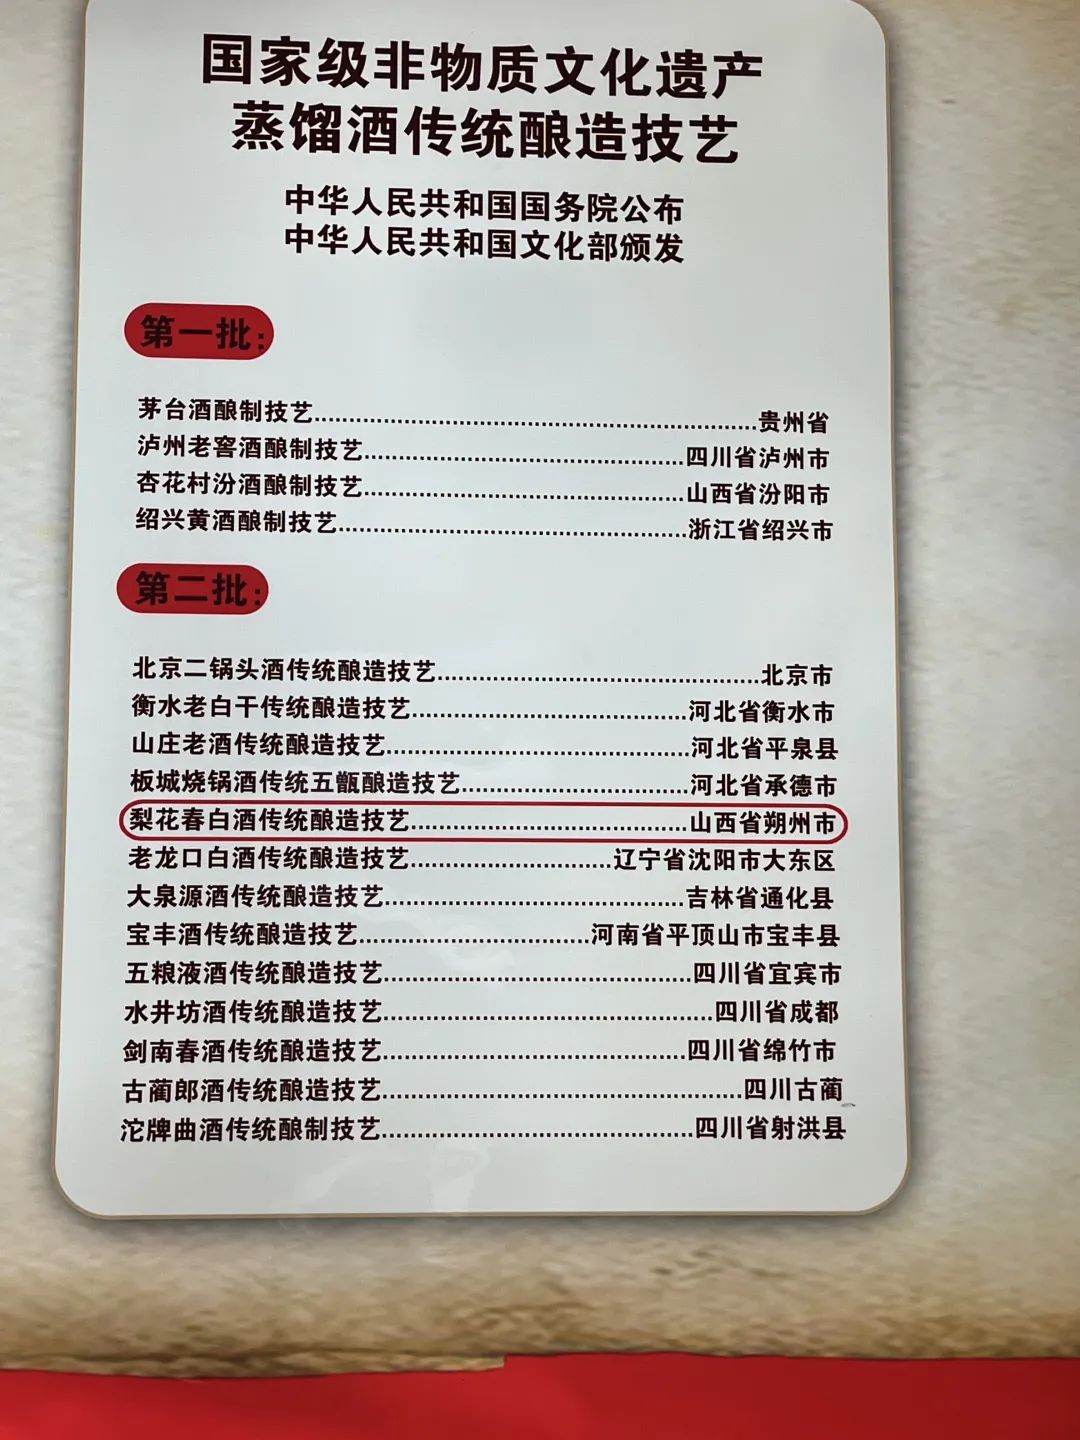 国家级非物质文化遗产
蒸馏酒传统酿造技艺
中华人民共和国国务院公布
中华人民共和国文化部颁发
第一批：
茅台酒酿制技艺........................贵州省
泸州老窖酒酿制技艺........................四川省泸州市
杏花村汾酒酿制技艺........................山西省汾阳市
绍兴黄酒酿制技艺........................浙江省绍兴市
第二批：
北京二锅头酒传统酿造技艺........................北京市
衡水老白干传统酿造技艺........................河北省衡水市
山庄老酒传统酿造技艺........................河北省平泉县
板城烧锅酒传统五甑酿造技艺........................河北省承德市
梨花春白酒传统酿造技艺........................山西省朔州市
老龙口白酒传统酿造技艺........................辽宁省沈阳市大东区
大泉源酒传统酿造技艺........................吉林省通化县
宝丰酒传统酿造技艺........................河南省平顶山市宝丰县
五粮液酒传统酿造技艺........................四川省宜宾市
水井坊酒传统酿造技艺........................四川省成都
剑南春酒传统酿造技艺........................四川省绵竹市
古蔺郎酒传统酿造技艺........................四川古蔺
沱牌曲酒传统酿制技艺........................四川省射洪县